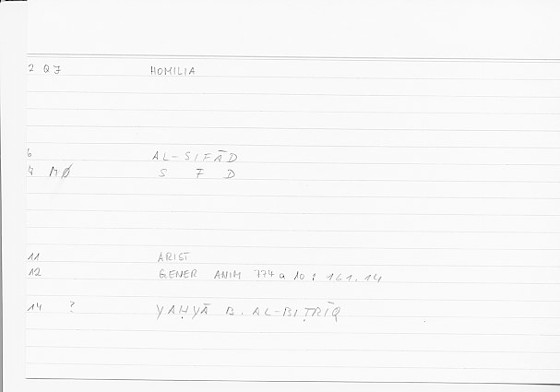 2 QJ HOMILIA
6 AL-SIFĀD
7 MØ S F D
11 ARIST
12 GENER ANIM 774a 10 : 161.14
14 ? YAḤYĀ B. AL-BIṬRĪQ